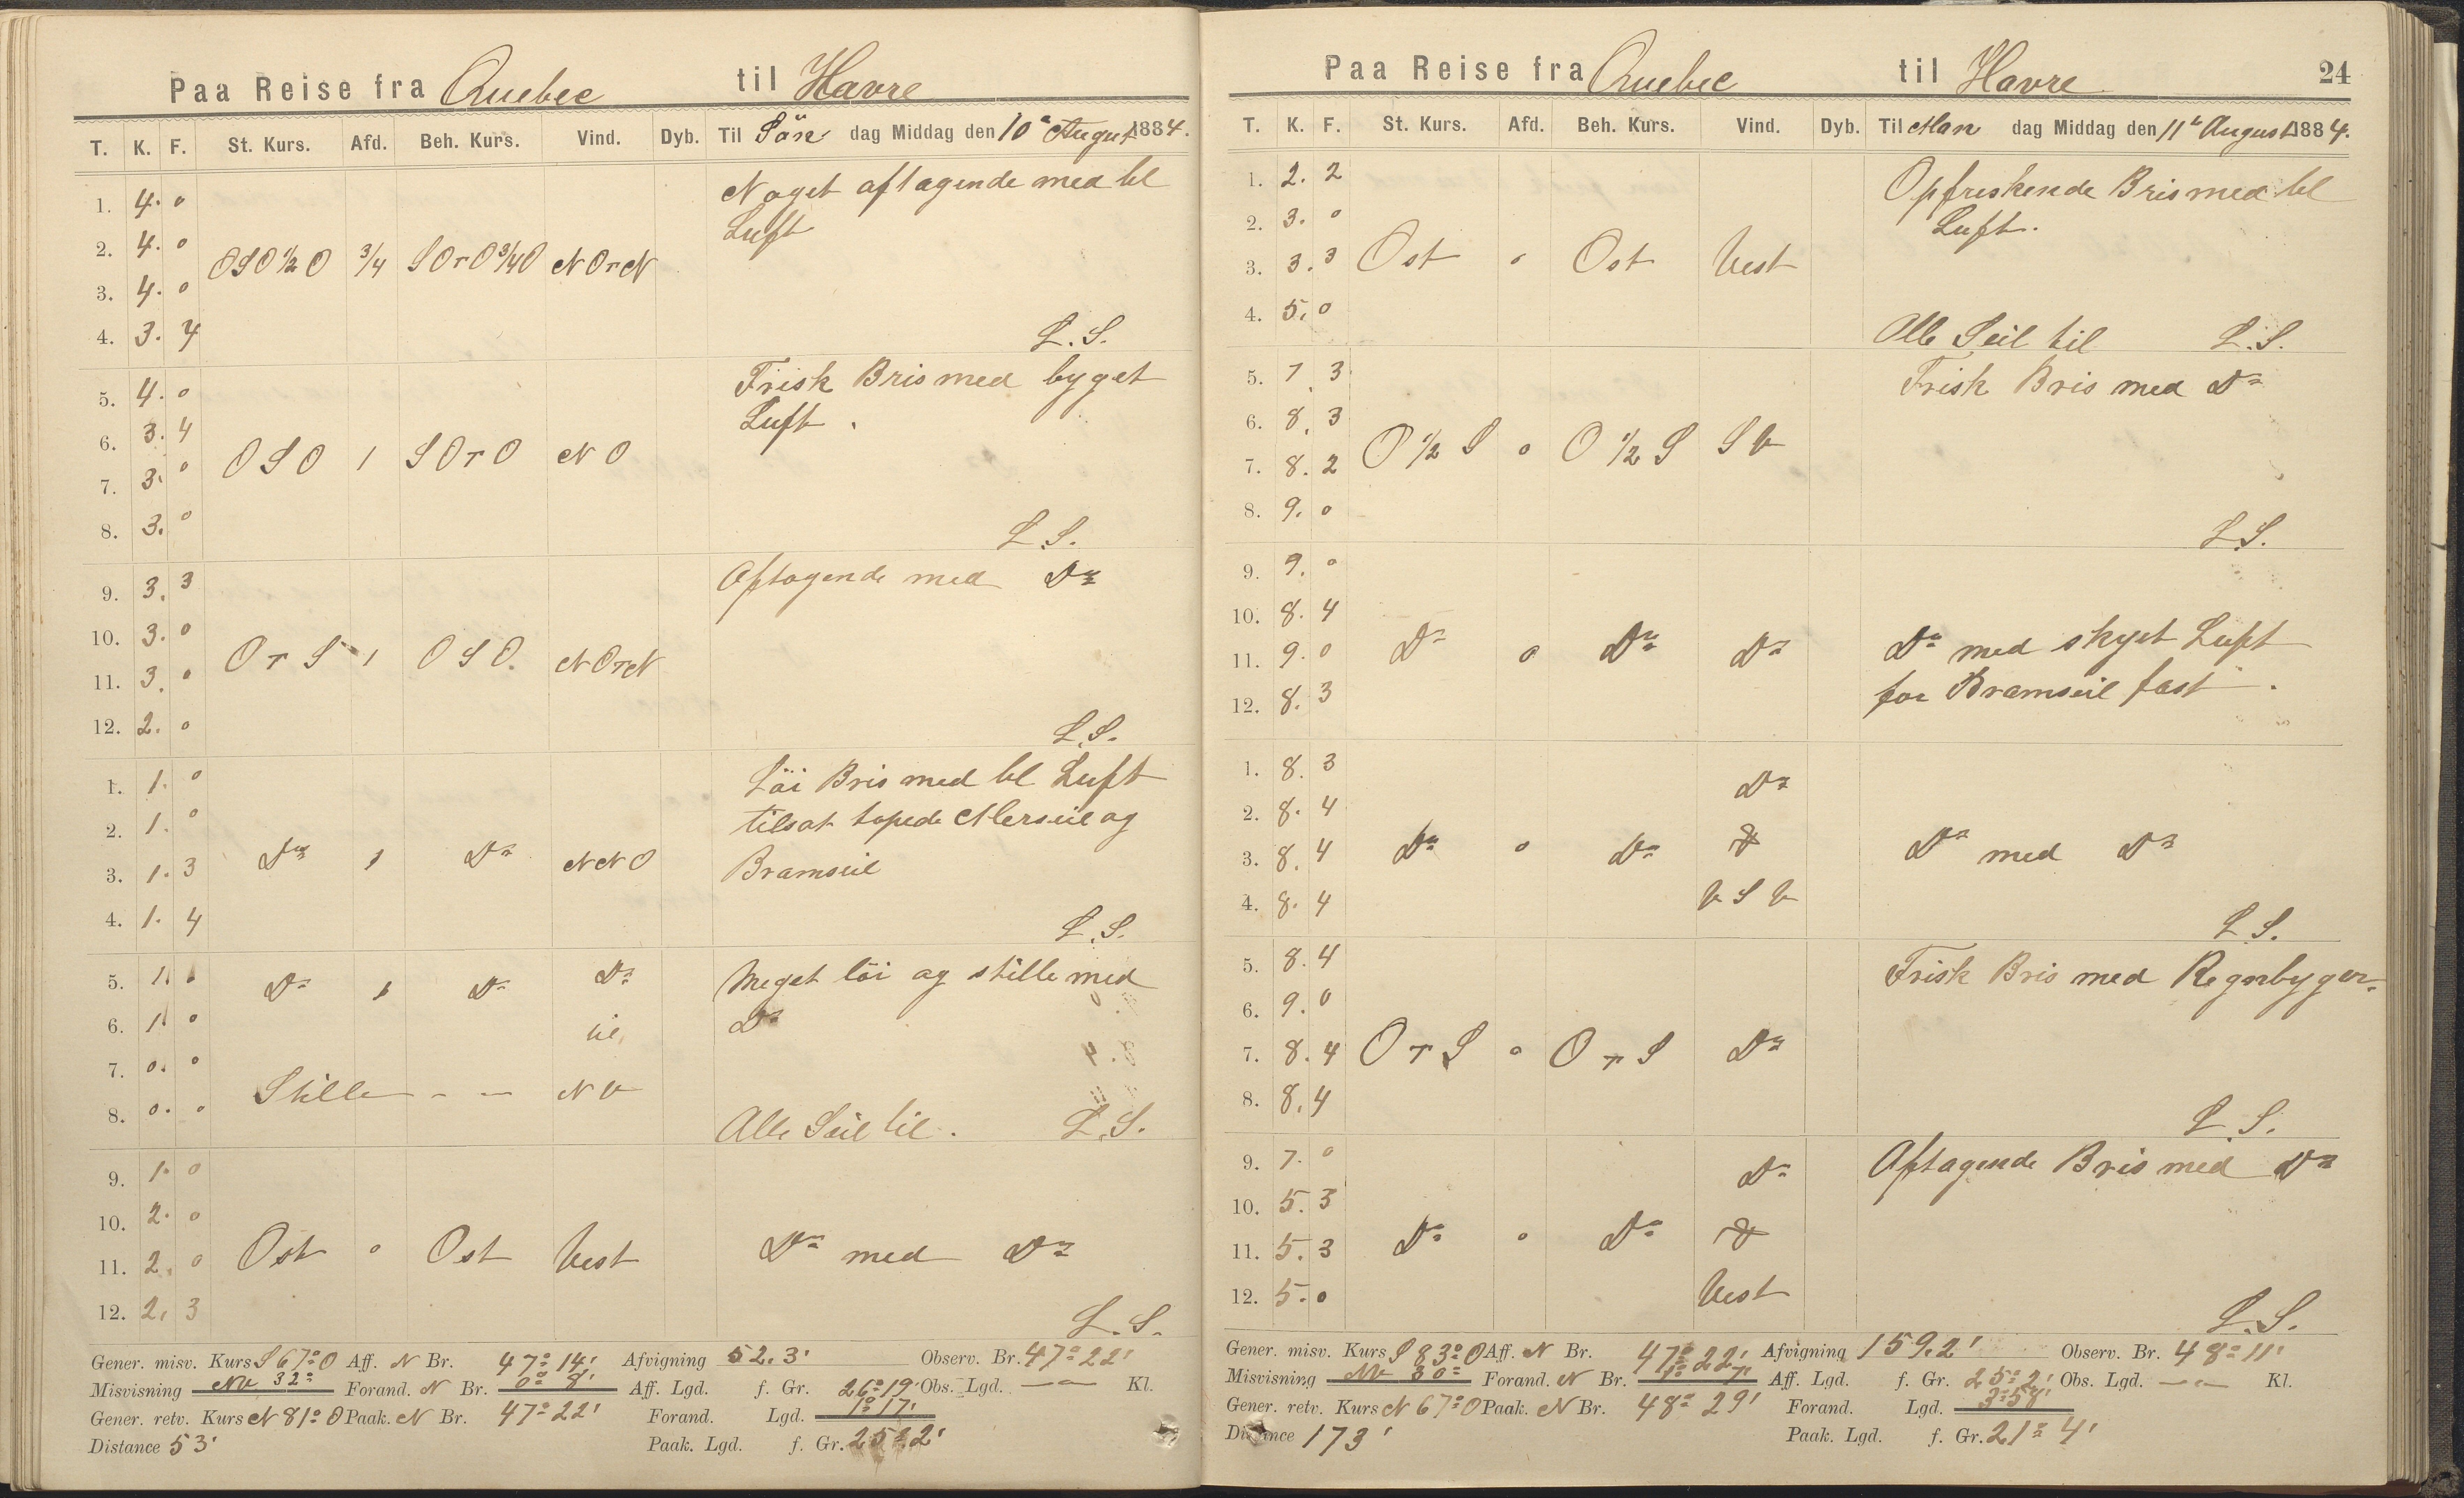 Paa Reise fra Quebec til Havre
T. K. F. St. Kurs. Afd. Beh. Kurs. Vind. Dyb. Til Sön dag Middag den 10de August 1884.
1. 4. 0 Noget aftagende med bl
Luft
2. 4. 0 OSO 1/2 O 3/4 SOrO 3/4 O NOrN
3. 4. 0
4. 3. 4 L.S.
5. 4. 0 Frisk Bris med byget
6. 3. 4 Luft.
7. 3. 0 OSO 1 SOrO NO
8. 3. 0 L.S.
9. 3. 3 Aftagende med Do
10. 3. 0
11. 3. 0 OrS 1 OSO. NOrN
12. 2. 0 L.S.
1. 1. 0 Löi Bris med bl Luft
2. 1. 0 tilsat Merseil og
3. 1. 3 Do 1 Do NNO Bramseil
4. 1. 4 L.S.
5. 1. 0 Do 1 Do Do Meget löi og stille med
6. 1. 0 til Do
7. 0. 0
8. 0. 0 Stille - - NV Alle Seil til. L.S.
9. 1. 0
10. 2. 0
11. 2. 0 Ost 0 Ost Vest Do med Do
12. 2. 3 L.S.
Gener. misv. Kurs S 67° O Aff. N Br. 47° 14' Afvigning 52.3' Observ. Br. 47° 22'
Misvisning NV 32° Forand. N Br. 0° 8' Aff. Lgd. f. Gr. 26° 19' Obs. Lgd. — Kl.
Gener. retv. Kurs N 81° O Paak. N Br. 47° 22' Forand. Lgd. 1° 17'
Distance 53' Paak. Lgd. f. Gr. 25° 2'
Paa Reise fra Quebec til Havre 24
T. K. F. St. Kurs. Afd. Beh. Kurs. Vind. Dyb. Til Man dag Middag den 11te August 1884.
1. 2. 2 Opfriskende Bris med bl
2. 3. 0 Luft.
3. 3. 3 Ost 0 Ost Vest
4. 5. 0 Alle Seil til L.S.
5. 7. 3 Frisk Bris med Do
6. 8. 3
7. 8. 2 O 1/2 S 0 O 1/2 S SV
8. 9. 0 L.S.
9. 9. 0
10. 8. 4
11. 9. 0 Do 0 Do Do Do med skyet Luft
12. 8. 3 for Bramseil fast.
1. 8. 3 Do
2. 8. 4
3. 8. 4 Do 0 Do & Do med Do
4. 8. 4 VSV L.S.
5. 8. 4 Frisk Bris med Regnbyger.
6. 9. 0
7. 8. 4 OrS 0 OrS Do
8. 8. 4 L.S.
9. 7. 0 Do Aftagende Bris med Do
10. 5. 3
11. 5. 3 Do 0 Do &
12. 5. 0 Vest L.S.
Gener. misv. Kurs S 83° O Aff. N Br. 47° 22' Afvigning 159.2' Observ. Br. 48° 11'
Misvisning NV 30° Forand. N Br. 1° 7' Aff. Lgd. f. Gr. 25° 2' Obs. Lgd. — Kl.
Gener. retv. Kurs N 67° O Paak. N Br. 48° 29' Forand. Lgd. 3° 58'
Distance 173' Paak. Lgd. f. Gr. 21° 4'